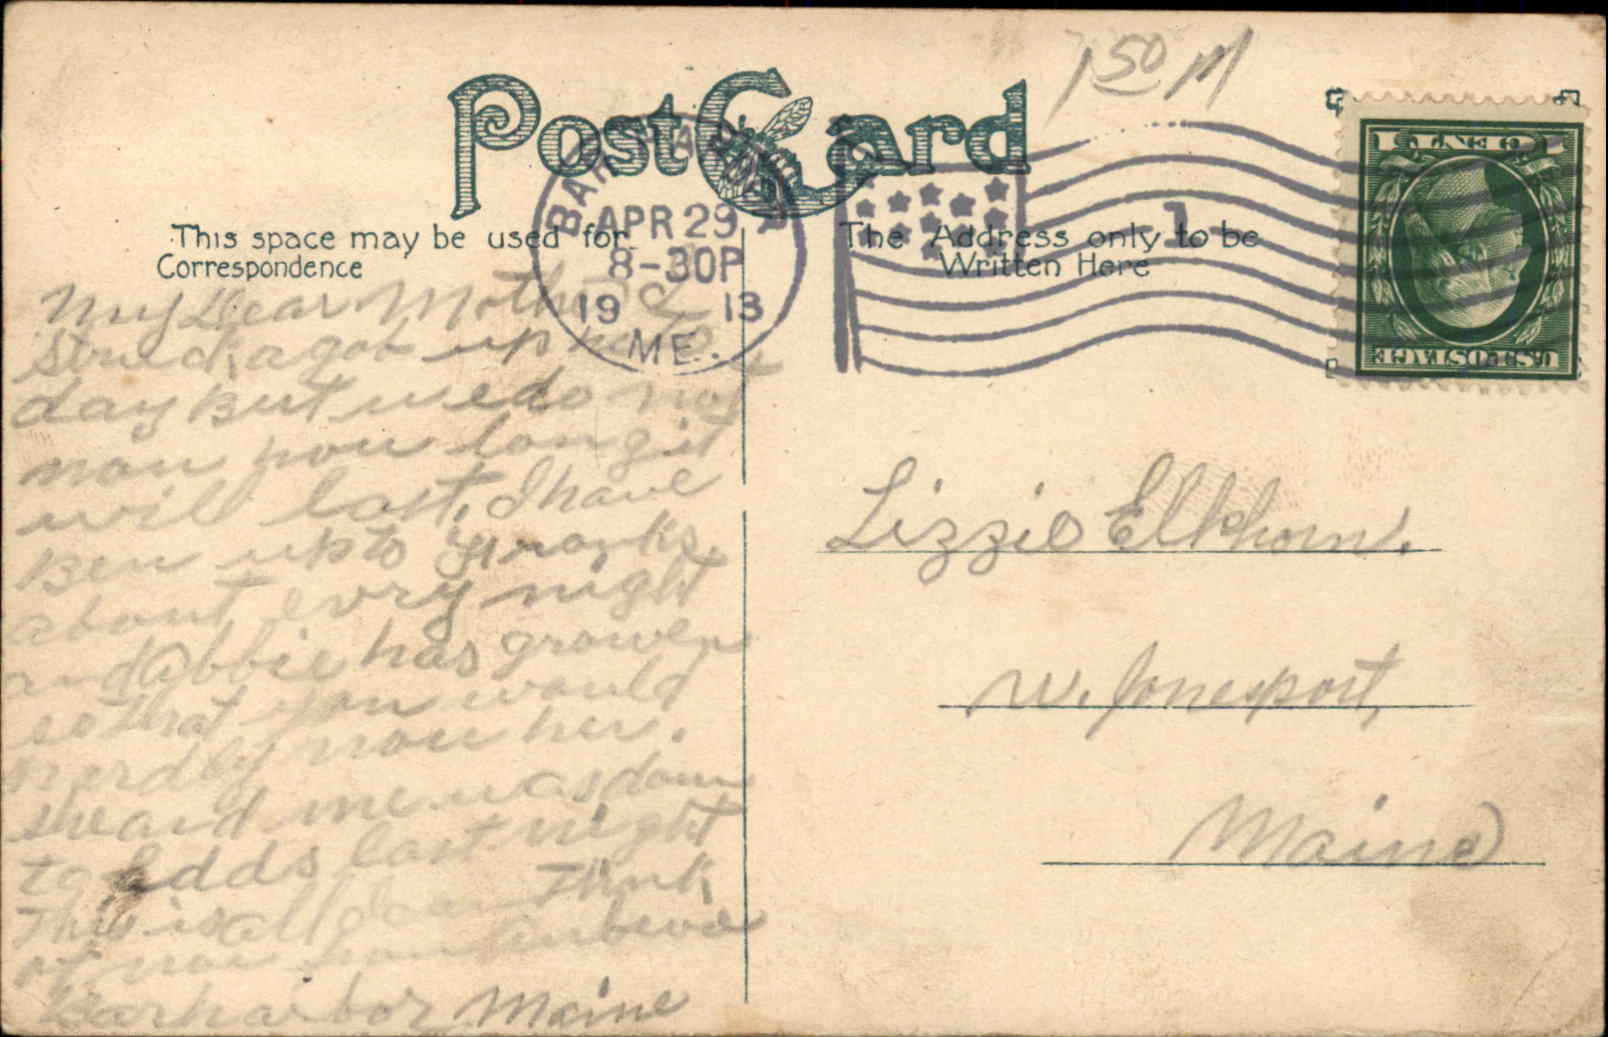 150 M
Post Card
BAR HARBOR
APR 29
8-30P
1913
ME.
1
U.S. POSTAGE
1 CENT 1
This space may be used for
Correspondence
The Address only to be
Written Here
My Dear Mother I
struck a gob up
day But we do not
now how long it
will last, I have
Ben up to
about evry night
and Abbie has growen
so that you would
hardly now her.
she and me was down
to Edds last night
This is all I can Think
of now
Barharbor Maine
Lizzie Elkhorn.
W. Jonesport,
Maine